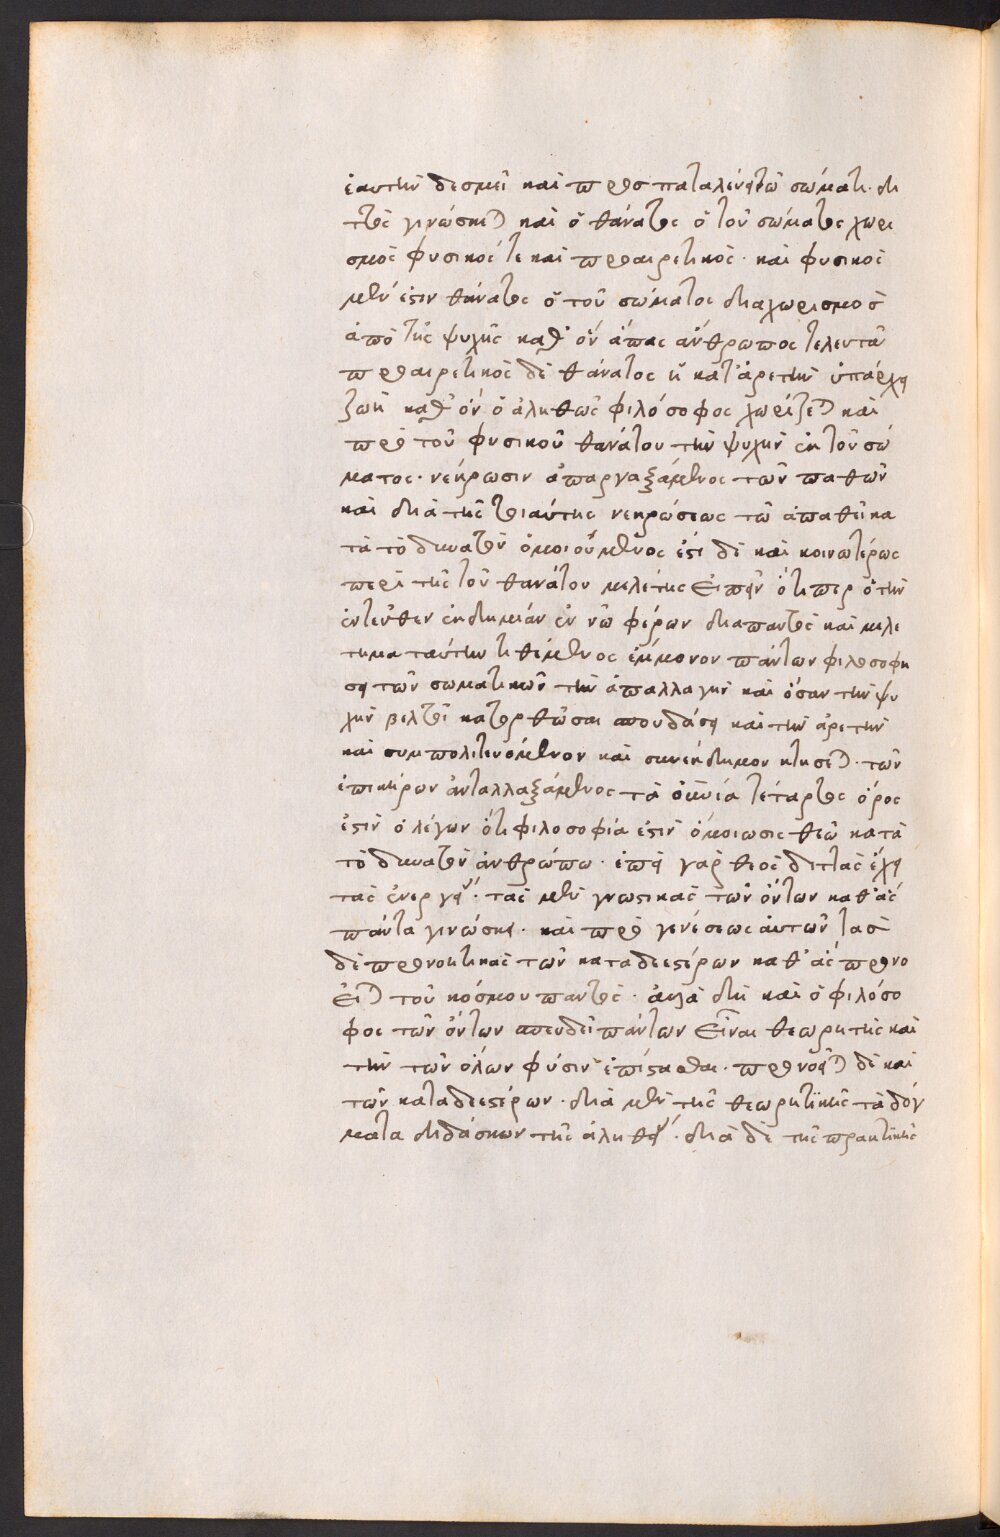 ἑαυτὴν δεσμεῖ καὶ προσπαταλεύει τῷ σώματι. δι
τὸς γινώσκεται καὶ ὁ θάνατος ὁ τοῦ σώματος χωρι
σμὸς φυσικός τε καὶ προαιρετικὸς· καὶ φυσικὸς
μέν ἐστιν θάνατος ὁ τοῦ σώματος διαχωρισμὸς
ἀπὸ τῆς ψυχῆς καθ' ὃν ἅπας ἄνθρωπος τελευτᾶ
προαιρετικὸς δὲ θάνατος ἡ κατ' ἀρετὴν ὑπάρχει
ζωὴ καθ' ὃν ὁ ἀληθῶς φιλόσοφος χωρίζεται καὶ
πρὸ τοῦ φυσικοῦ θανάτου τὴν ψυχὴν ἐκ τοῦ σώ
ματος· νέκρωσιν ἀπεργαξάμενος τῶν παθῶν
καὶ διὰ τῆς τοιαύτης νεκρώσεως τῶ ἀπαθεῖ κα
τὰ τὸ δυνατὸν ὁμοιούμενος ἔστι δὲ καὶ κοινωτέρως
περὶ τῆς τοῦ θανάτου μελέτης εἰπεῖν ὅτιπερ ὁ τὴν
ἐντεῦθεν ἐκδημίαν ἐν νῶ φέρων διαπαντὸς καὶ μελέ
τημα ταύτην τιθέμενος ἔμμονον πάντων φιλοσοφή
σει τῶν σωματικῶν τὴν ἀπαλλαγὴν καὶ ὅσαν τὴν ψυ
χὴν βελτοῖ κατορθῶσαι σπουδάσει καὶ τὴν ἀρετὴν
καὶ συμπολιτευόμενον καὶ συνέκδημον κτήσεται· τῶν
ἐπικήρων ἀνταλλαξάμενος τὰ αἰώνια τέταρτος ὅρος
ἐστὶν ὁ λέγων ὅτι φιλοσοφία ἐστὶν ὁμοίωσις θεῶ κατὰ
τὸ δυνατὸν ἀνθρώπω· ἐπεὶ γὰρ θεὸς διττὰς ἔχει
τὰς ἐνεργείας· τὰς μὲν γνωστικὰς τῶν ὄντων καθ' ἃς
πάντα γινώσκει· καὶ πρὸ γενέσεως αὐτῶν τὰς
δὲ προνοητικὰς τῶν καταδεεστέρων καθ' ἃς προνο
εῖται τοῦ κόσμου παντὸς· ἀλλὰ δὴ καὶ ὁ φιλόσο
φος τῶν ὄντων σπεύδει πάντων εἶναι θεωρητὴς καὶ
τὴν τῶν ὅλων φύσιν ἐπίστασθαι· προνοεῖται δὲ καὶ
τῶν καταδεεστέρων· διὰ μὲν τῆς θεωρητικῆς τὰ δόγ
ματα διδάσκων τῆς ἀληθείας· διὰ δὲ τῆς πρακτικῆς